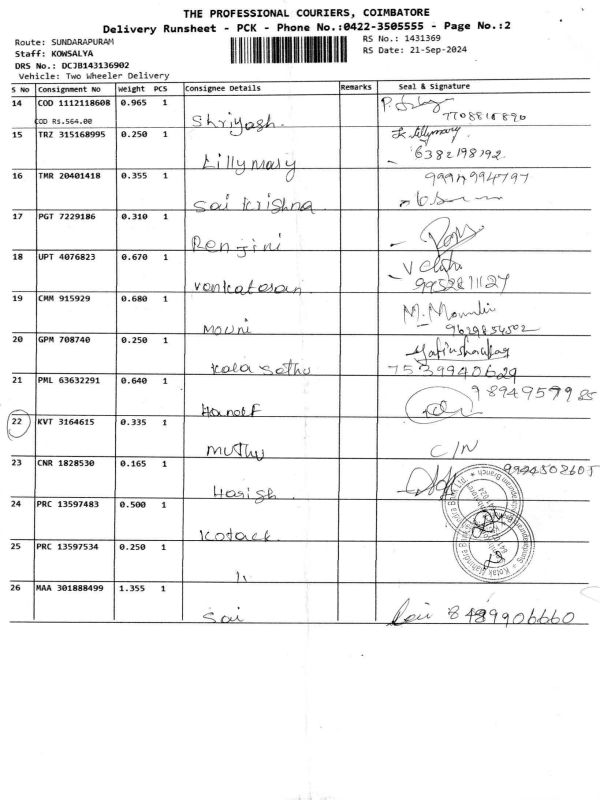 THE PROFESSIONAL COURIERS, COIMBATORE
Delivery Runsheet - PCK - Phone No.:0422-3505555 - Page No.:2
Route: SUNDARAPURAM
RS No.: 1431369
Staff: KOWSALYA
RS Date: 21-Sep-2024
DRS No.: DCJB143136902
Vehicle: Two Wheeler Delivery
S No Consignment No Weight PCS Consignee Details Remarks Seal & Signature
14 COD 1112118608 0.965 1
COD RS.564.00 Shriyash. 7708816890
15 TRZ 315168995 0.250 1 Lillymary
6382198192
16 TMR 20401418 0.355 1 Sai Krishna
17 PGT 7229186 0.310 1 Renjini
18 UPT 4076823 0.670 1 Venkatesan
9952811127
19 CMM 915929 0.680 1 M.
Mouni 9629854502
20 GPM 708740 0.250 1
Kala Sethu 7539940629
21 PML 63632291 0.640 1
Haneef
22 KVT 3164615 0.335 1
Muthu C/N
23 CNR 1828530 0.165 1 9944502605
Harish
24 PRC 13597483 0.500 1
Kotack
25 PRC 13597534 0.250 1
26 MAA 301888499 1.355 1
Sai 8489906660